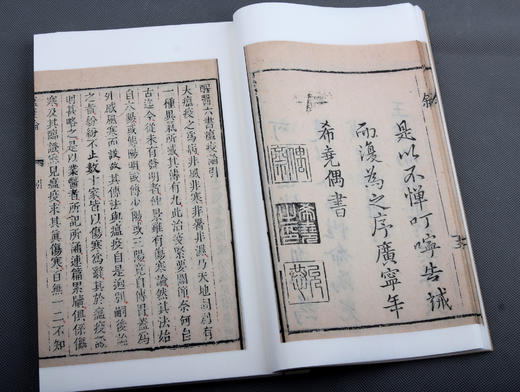 是以不憚叮嚀告誡
而復為之序廣寧年
希堯偶書
醒醫六書瘟疫論引
夫瘟疫之為病非風非寒非暑非濕乃天地間別有
一種異氣所感其傳有九此治疫緊要關節奈何自
古迄今從未有發明者仲景雖有傷寒論然其法始
自太陽或傳陽明或傳少陽或三陽竟自傳胃蓋為
外感風寒而設故其傳法與瘟疫自是迥別嗣後論
之者紛紛不止數十家皆以傷寒為辭其於瘟疫
則甚略之是以業醫者所記所誦連篇累牘俱係傷
寒及其臨證悉見瘟疫求其真傷寒百無一二不知